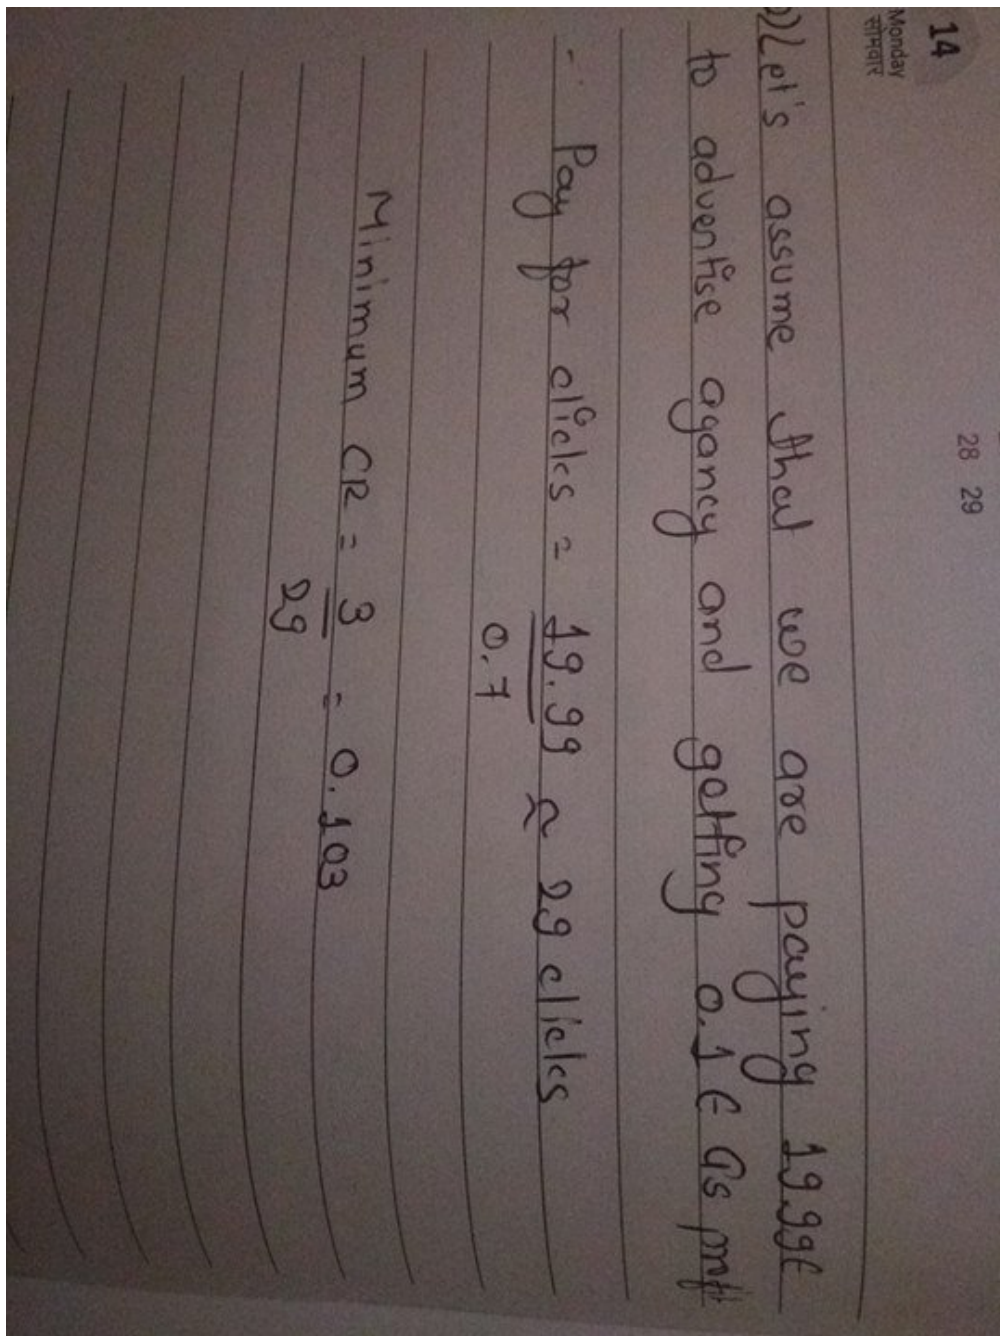 14
Monday
सोमवार
28 29
Let's assume that we are paying 19.99€
to advertise agancy and getting 0.1 € as profit
∴ Pay for clicks = 19.99 ≈ 29 clicks
0.7
Minimum CR = 3 = 0.103
29